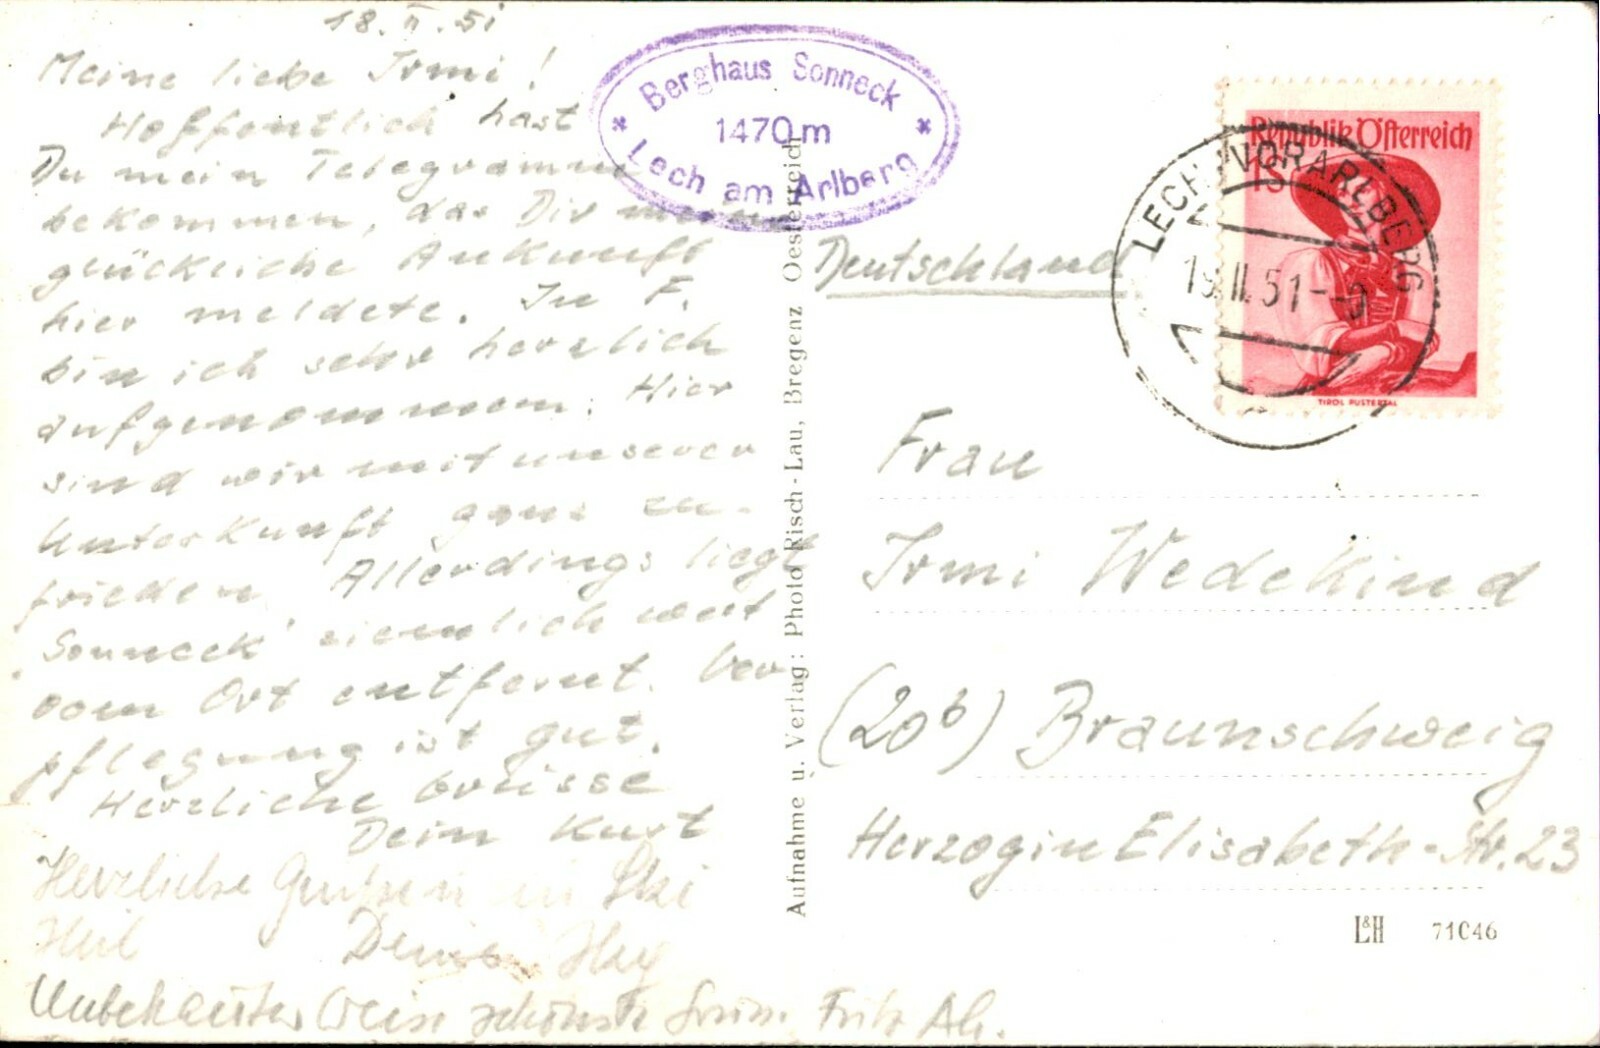 18. II. 51
Meine liebe Irmi!
Hoffentlich hast
Du mein Telegramm
bekommen, das Dir meine
glückliche Ankunft
hier meldete. In F.
bin ich sehr herzlich
aufgenommen. Hier
sind wir mit unserer
Unterkunft ganz zu-
frieden. Allerdings liegt
"Sonneck" ziemlich weit
vom Ort entfernt. Ver
pflegung ist gut.
Herzliche Grüsse
Dein Kurt
Herzliche in Ski
Heil
Unbekannter Weise schönste Fritz
Berghaus Sonneck
1470 m
Lech am Arlberg
Aufnahme u. Verlag: Photo Risch-Lau, Bregenz Oesterreich
Republik Österreich
1S
TIROL PUSTERTAL
LECH VORARLBERG
19.II.51
Deutschland
Frau
Irmi Wedekind
(20b) Braunschweig
Herzogin Elisabeth-Str. 23
L&H 71046